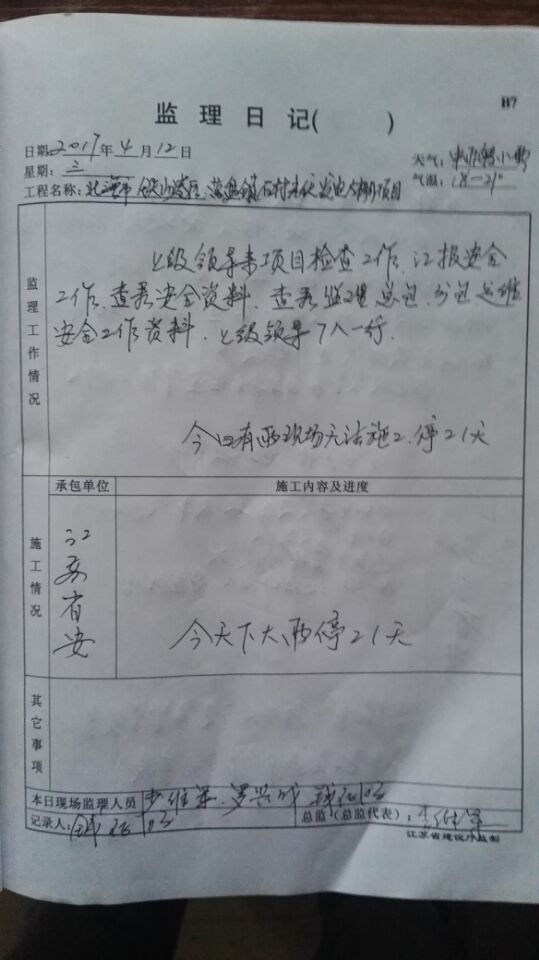 B7
监理日记( )
日期:2017年4月12日
星期:三
天气:中雨转小雨
气温:18-21°
工程名称:北海市铁山港区 项目
监理工作情况
上级领导来项目检查工作,汇报安全
工作,查看安全资料,查看监理总包、分包运维
安全工作资料,上级领导7人一行.
今日有雨现场无法施工,停工1天
承包单位
施工内容及进度
施工情况
江苏省安
今天下大雨停工1天
其它事项
本日现场监理人员
记录人:
总监(总监代表):
江苏省建设厅监制